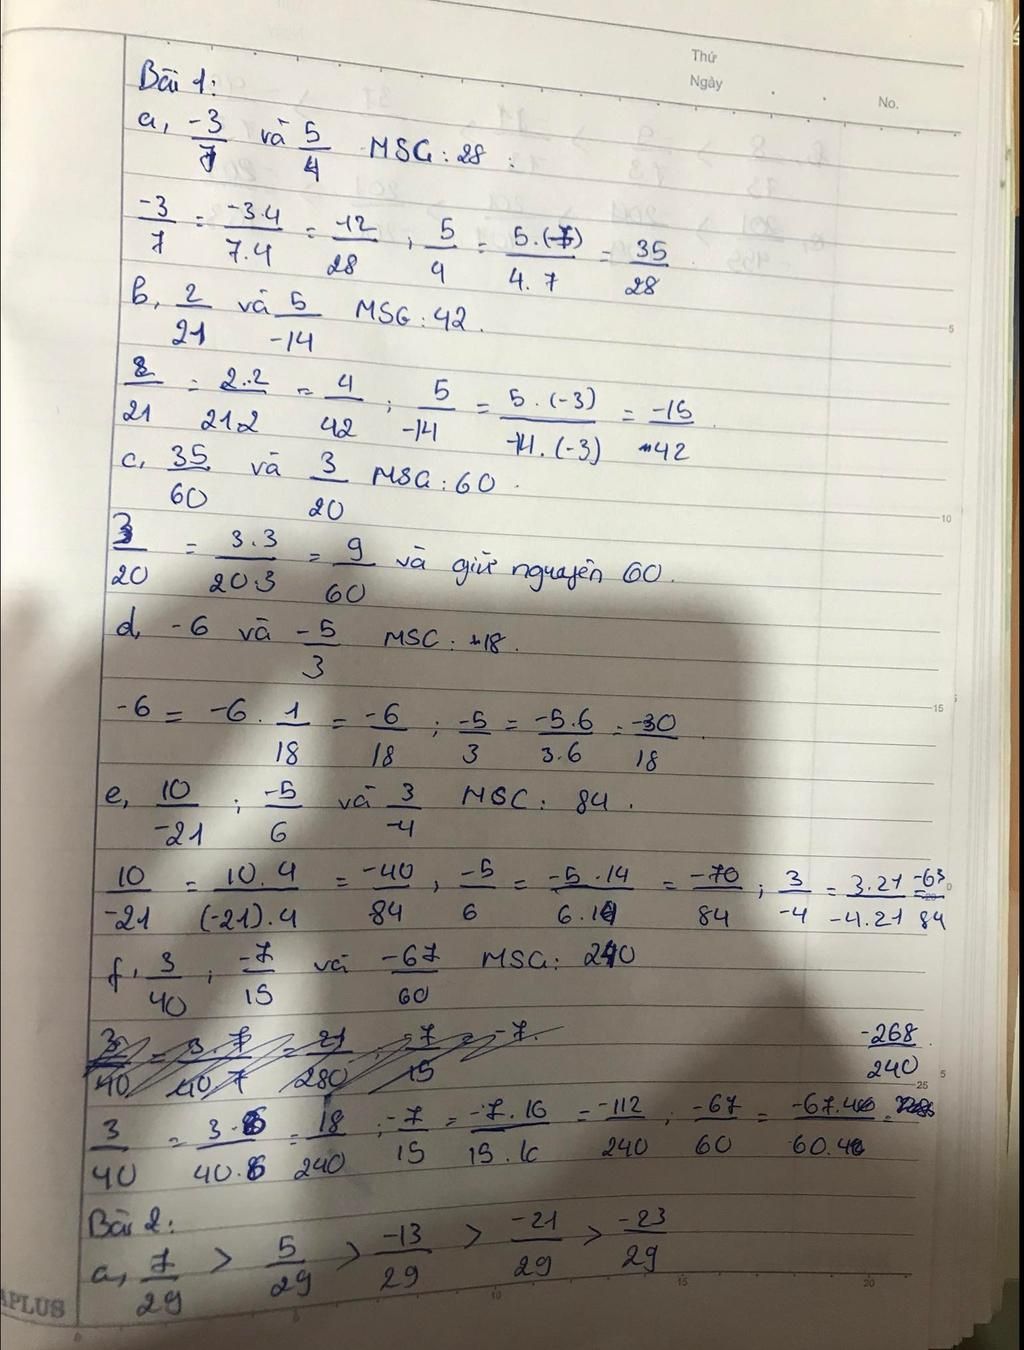 Thứ
Ngày
No.
Bài 1:
a, -3/7 và 5/4 MSC: 28
-3/7 = -3.4/7.4 = -12/28 ; 5/4 = 5.(7)/4.7 = 35/28
b, 2/21 và 5/-14 MSC: 42.
2/21 = 2.2/21.2 = 4/42 ; 5/-14 = 5.(-3)/-14.(-3) = -15/42
c, 35/60 và 3/20 MSC: 60.
3/20 = 3.3/20.3 = 9/60 và giữ nguyên 60.
d, -6 và -5/3 MSC: 18.
-6 = -6.1/18 = -6/18 ; -5/3 = -5.6/3.6 = -30/18
e, 10/-21 ; -5/6 và 3/-4 MSC: 84.
10/-21 = 10.4/(-21).4 = -40/84 , -5/6 = -5.14/6.14 = -70/84 ; 3/-4 = 3.21/-4.21 = -63/84
f, 3/40 ; -7/15 và -67/60 MSC: 240
3/40 = 3.7/40.7 = 21/280 ; -7/15 = -7.
-268/240
3/40 = 3.6/40.6 = 18/240 ; -7/15 = -7.16/15.16 = -112/240 ; -67/60 = -67.4/60.4 =
Bài 2:
a, 7/29 > 5/29 > -13/29 > -21/29 > -23/29
APLUS